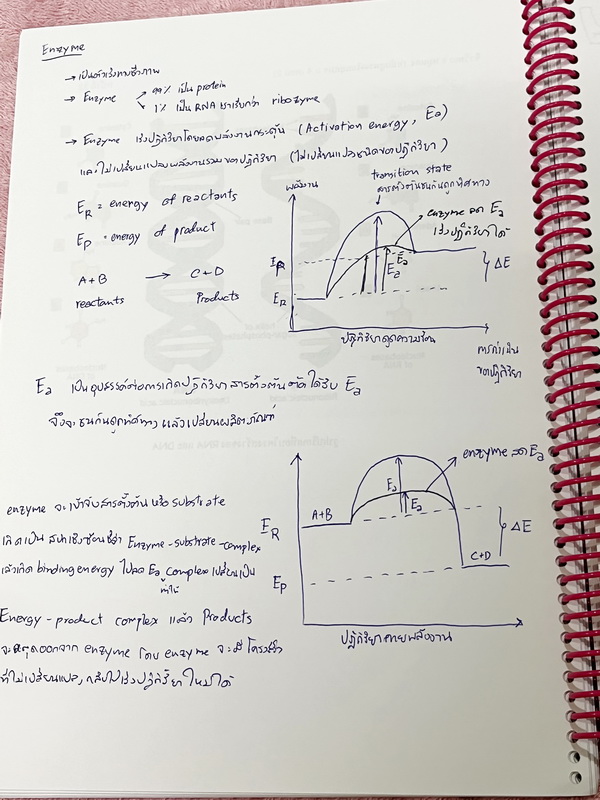 Enzyme
→ เป็นตัวเร่งทางชีวภาพ
→ Enzyme 99% เป็น protein
1% เป็น RNA เราเรียกว่า ribozyme
→ Enzyme เร่งปฏิกิริยาโดยลดพลังงานกระตุ้น (Activation energy, Ea)
และไม่เปลี่ยนแปลงพลังงานรวมของปฏิกิริยา (ไม่เปลี่ยนแปลงชนิดของปฏิกิริยา)
ER = energy of reactants
EP = energy of product
A+B → C+D
reactants Products
พลังงาน
transition state
สารตั้งต้นชนกันถูกทิศทาง
enzyme ลด Ea
เร่งปฏิกิริยาได้
ER
Ea
Ea
ΔE
ปฏิกิริยาดูดความร้อน
การดำเนิน
ของปฏิกิริยา
Ea เป็นอุปสรรค์ต่อการเกิดปฏิกิริยา สารตั้งต้นต้องได้รับ Ea
จึงจะชนกันถูกทิศทาง แล้วเปลี่ยนผลิตภัณฑ์
enzyme จะเข้าจับสารตั้งต้นหรือ substrate
เกิดเป็น สารเชิงซ้อนชื่อว่า Enzyme-substrate-complex
แล้วเกิด binding energy ไปลด Ea ทำให้ complex เปลี่ยนเป็น
Energy-product complex แล้ว Products
จะหลุดออกจาก enzyme โดย enzyme จะมีโครงสร้าง
ที่ไม่เปลี่ยนแปลง, กลับไปเร่งปฏิกิริยาใหม่ได้
enzyme ลด Ea
A+B
Ea
Ea
ER
ΔE
C+D
EP
ปฏิกิริยาคายพลังงาน